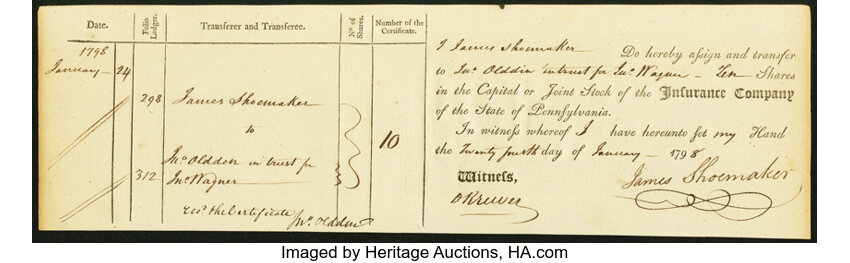 Date.
Folio Ledger.
Transferer and Transferee.
No of Shares.
Number of the Certificate.
1798
January - 24
298
James Shoemaker
to
312
Jno Olddin in trust for
Jno Wagner
10
Recd the Certificate
Jno Olddin
I James Shoemaker Do hereby aſsign and transfer
to Jno Olddin in trust for Jno Wagner - Ten Shares
in the Capital or Joint Stock of the Inſurance Company
of the State of Pennſylvania.
In witneſs whereof I have hereunto ſet my Hand
the Twenty fourth day of January - 1798
Witneſs,
James Shoemaker
Imaged by Heritage Auctions, HA.com